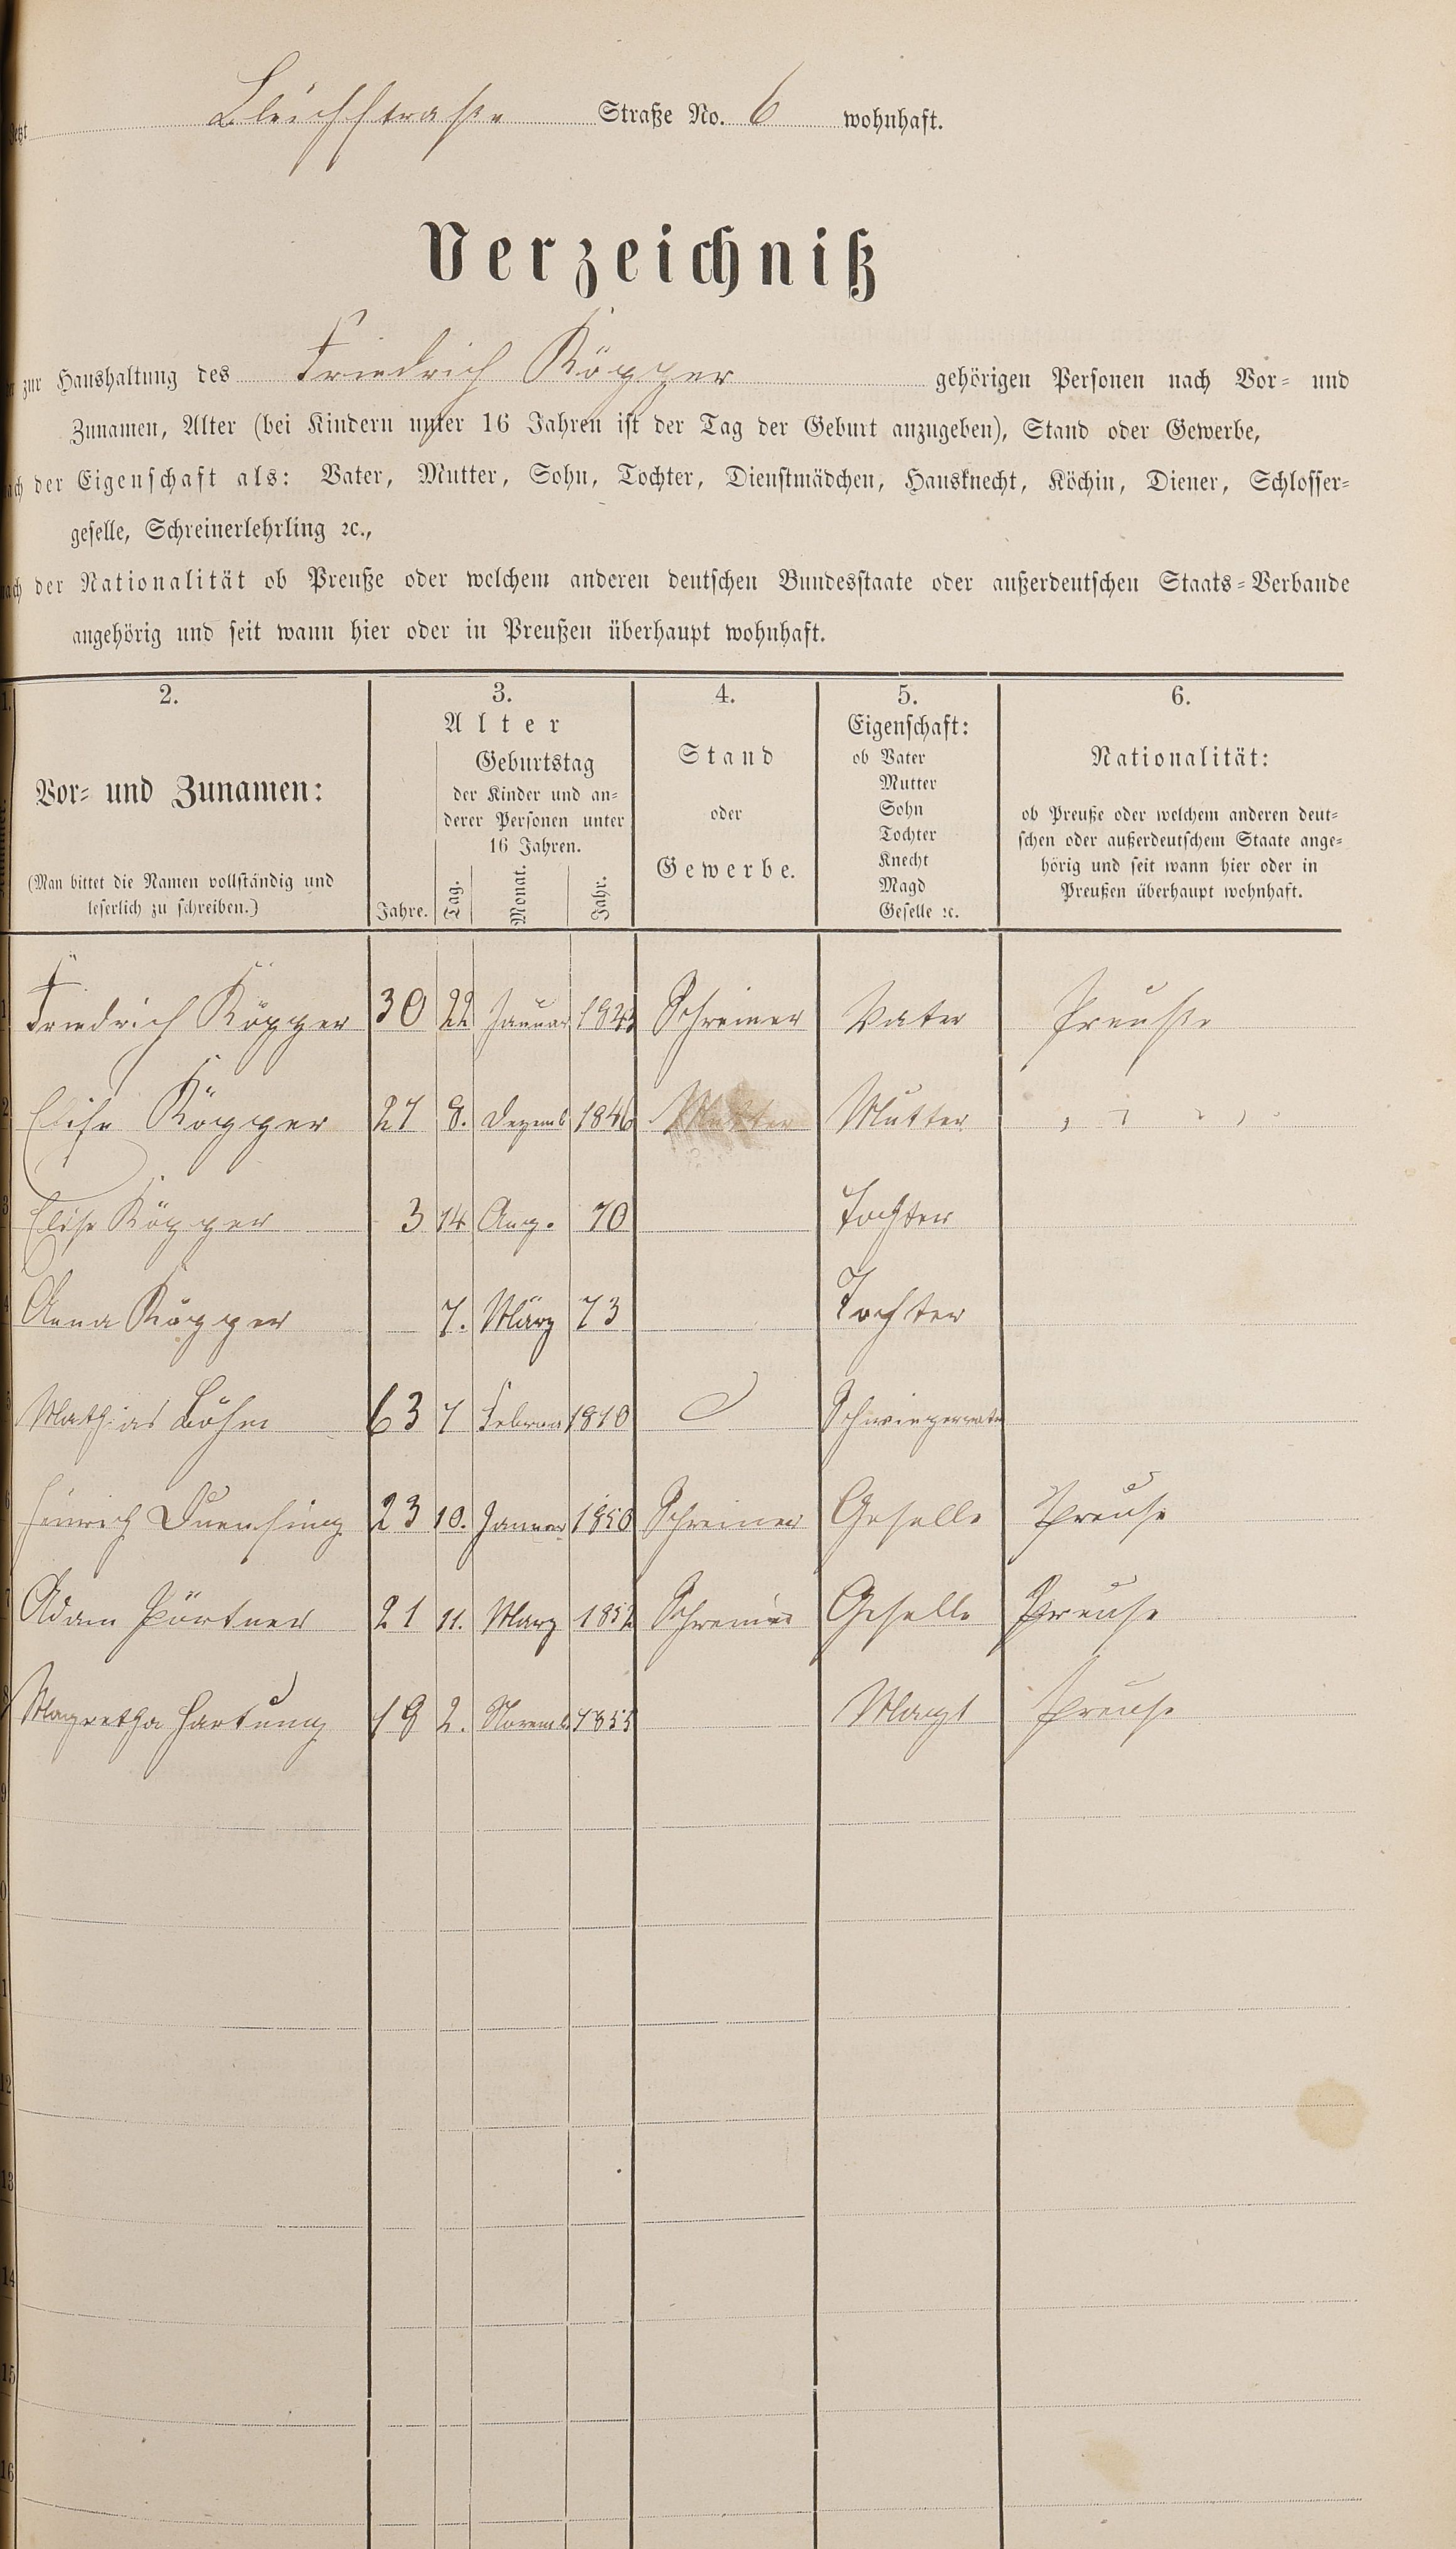 Bleichstraße Straße No. 6 wohnhaft.
Verzeichniß
zur Haushaltung des Friedrich Köpper gehörigen Personen nach Vor- und
Zunamen, Alter (bei Kindern unter 16 Jahren ist der Tag der Geburt anzugeben), Stand oder Gewerbe,
der Eigenschaft als: Vater, Mutter, Sohn, Tochter, Dienstmädchen, Hausknecht, Köchin, Diener, Schlosser-
geselle, Schreinerlehrling ꝛc.,
der Nationalität ob Preuße oder welchem anderen deutschen Bundesstaate oder außerdeutschen Staats-Verbande
angehörig und seit wann hier oder in Preußen überhaupt wohnhaft.
1. 2. 3. 4. 5. 6.
Vor- und Zunamen:
(Man bittet die Namen vollständig und
leserlich zu schreiben.)
Alter
Jahre.
Geburtstag
der Kinder und an-
derer Personen unter
16 Jahren.
Tag. Monat. Jahr.
Stand
oder
Gewerbe.
Eigenschaft:
ob Vater
Mutter
Sohn
Tochter
Knecht
Magd
Geselle ꝛc.
Nationalität:
ob Preuße oder welchem anderen deut-
schen oder außerdeutschem Staate ange-
hörig und seit wann hier oder in
Preußen überhaupt wohnhaft.
1 Friedrich Köpper 30 22 Januar 1843 Schreiner Vater Preuße
2 Elise Köpper 27 8. Dezemb 1846 Mutter Mutter
3 Elise Köpper 3 14 Aug. 70 Tochter
4 Anna Köpper 7. März 73 Tochter
5 Mathias Böhm 63 7 Februa 1810 Schwiegervate
6 Heinrich Duensing 23 10. Januar 1850 Schreiner Geselle Preuse
7 Adam Pörtner 21 11. Marz 1852 Schreiner Geselle Preuse
8 Magretha Hartung 18 2. Novemb. 1855 Magt Preuse
9
0
1
12
13
14
15
16